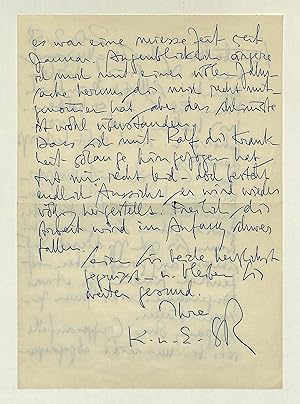 es war eine miese Zeit seit
Januar. Augenblicklich ärgere
ich mich mit einer üblen Zahn
sache herum, die mich recht mit
genommen hat aber das schlimmste
ist wohl überstanden.
Dass sich mit Ralf die Krank
heit solange hingezogen hat
tut mir recht leid – doch besteht
endlich Aussicht, er wird wieder
völlig hergestellt. Freilich, die
Arbeit wird im Anfang schwer
fallen.
Seien Sie beide herzlichst
gegrüsst – u. bleiben Sie
weiter gesund.
Ihre
K. u. E.